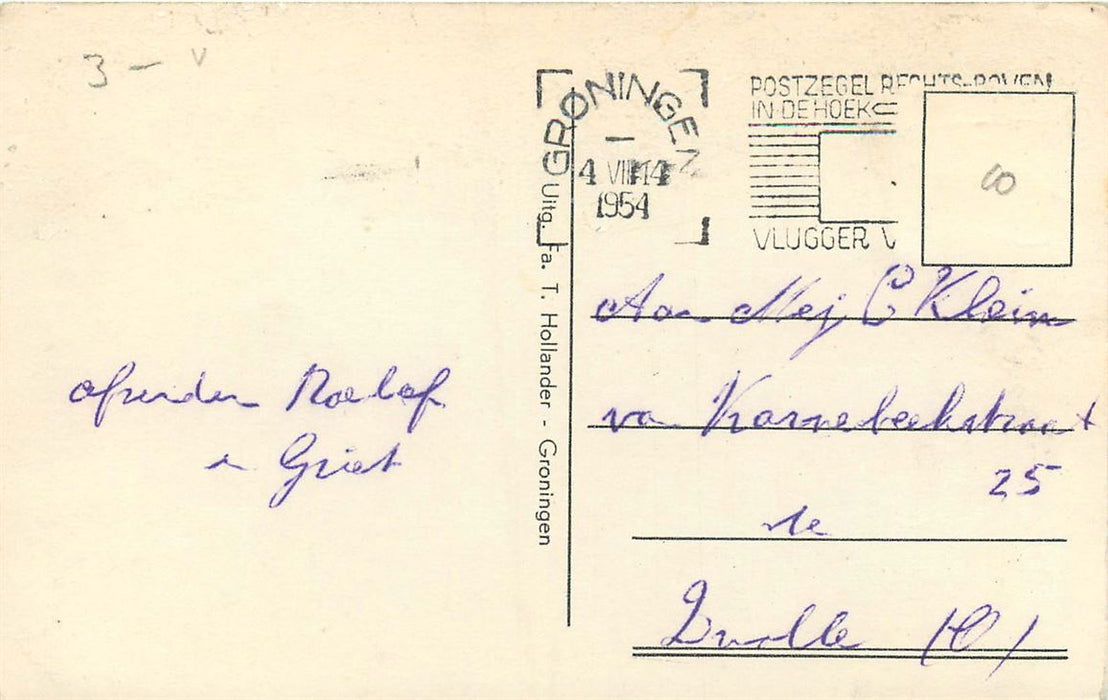 3 –
GRONINGEN
4 VIII 14
1954
POSTZEGEL RECHTS-BOVEN
IN DE HOEK
VLUGGER V
8
Uitg. Fa. T. Hollander - Groningen
afzender Roelof
en Griet
Aan Mej C Klein
van Karnebeekstraat
25
te
Zwolle (O)